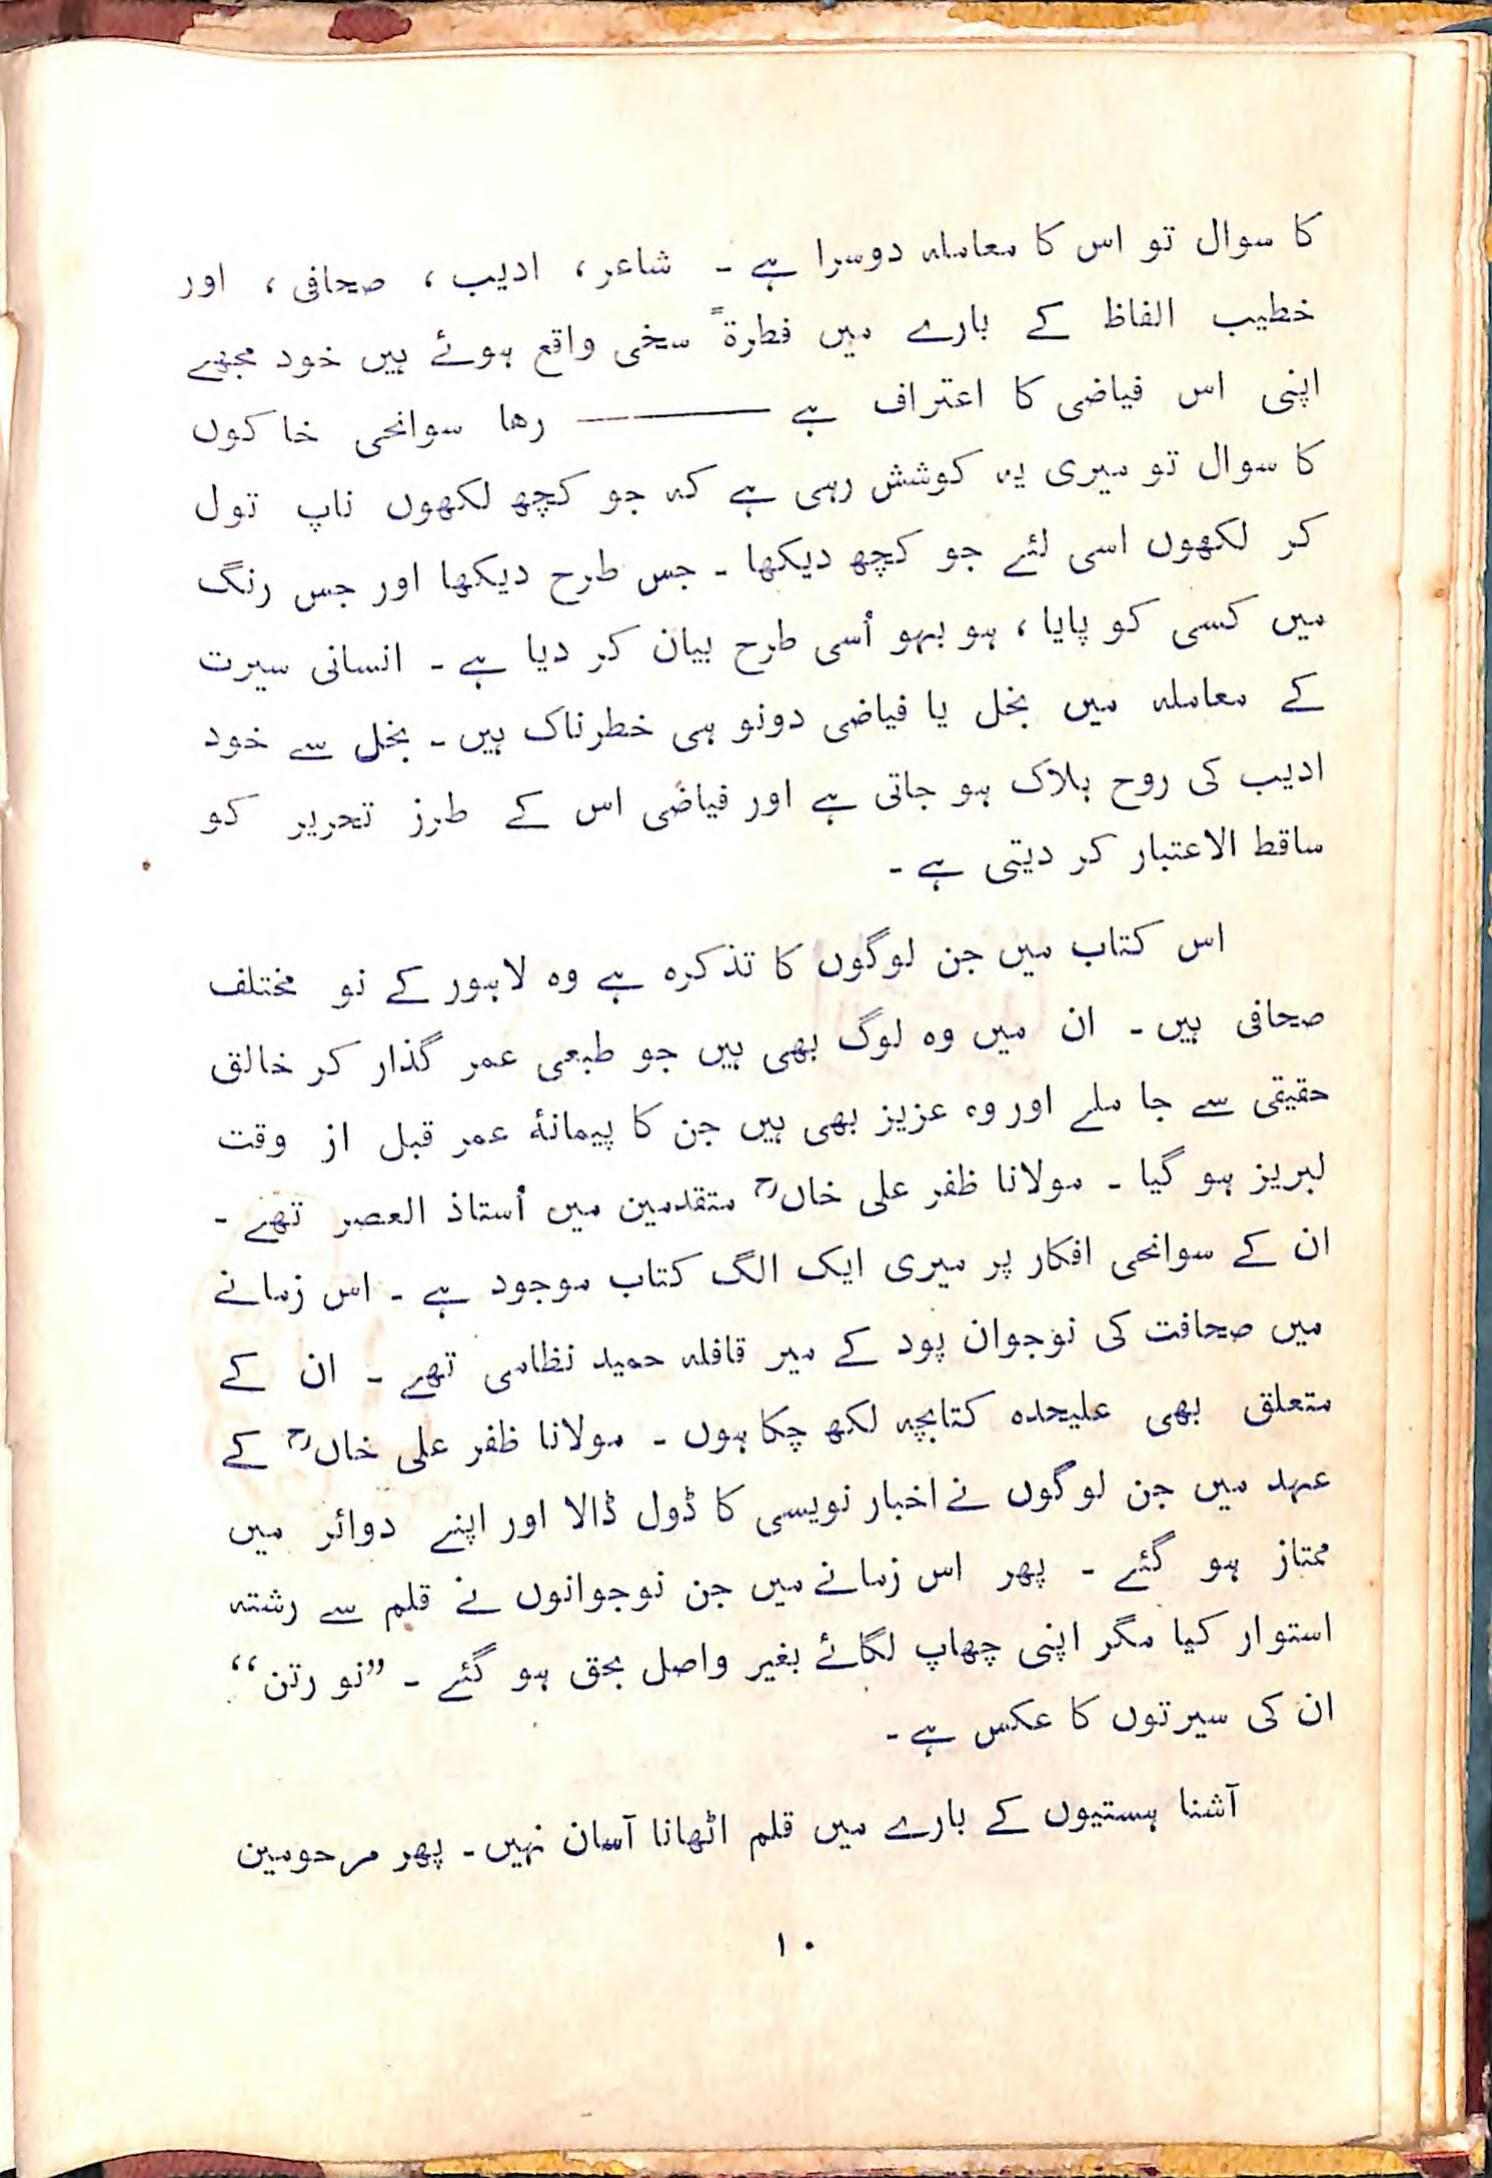 کا سوال تو اس کا معاملہ دوسرا ہے ۔ شاعر ، ادیب ، صحافی ، اور
خطیب الفاظ کے بارے میں فطرۃً سخی واقع ہوئے ہیں خود مجھے
اپنی اس فیاضی کا اعتراف ہے ——— رہا سوانحی خاکوں
کا سوال تو میری یہ کوشش رہی ہے کہ جو کچھ لکھوں ناپ تول
کر لکھوں اسی لئے جو کچھ دیکھا ۔ جس طرح دیکھا اور جس رنگ
میں کسی کو پایا ، ہو بہو اُسی طرح بیان کر دیا ہے ۔ انسانی سیرت
کے معاملہ میں بخل یا فیاضی دونو ہی خطرناک ہیں ۔ بخل سے خود
ادیب کی روح ہلاک ہو جاتی ہے اور فیاضی اس کے طرز تحریر کو
ساقط الاعتبار کر دیتی ہے ۔
اس کتاب میں جن لوگوں کا تذکرہ ہے وہ لاہور کے نو مختلف
صحافی ہیں ۔ ان میں وہ لوگ بھی ہیں جو طبعی عمر گذار کر خالق
حقیقی سے جا ملے اور وہ عزیز بھی ہیں جن کا پیمانۂ عمر قبل از وقت
لبریز ہو گیا ۔ مولانا ظفر علی خاںؒ متقدمین میں اُستاذ العصر تھے ۔
ان کے سوانحی افکار پر میری ایک الگ کتاب موجود ہے ۔ اس زمانے
میں صحافت کی نوجوان پود کے میر قافلہ حمید نظامی تھے ۔ ان کے
متعلق بھی علیحدہ کتابچہ لکھ چکا ہوں ۔ مولانا ظفر علی خاںؒ کے
عہد میں جن لوگوں نے اخبار نویسی کا ڈول ڈالا اور اپنے دوائر میں
ممتاز ہو گئے ۔ پھر اس زمانے میں جن نوجوانوں نے قلم سے رشتہ
استوار کیا مگر اپنی چھاپ لگائے بغیر واصل بحق ہو گئے ۔ ”نو رتن“
ان کی سیرتوں کا عکس ہے ۔
آشنا ہستیوں کے بارے میں قلم اٹھانا آسان نہیں ۔ پھر مرحومین
۱۰